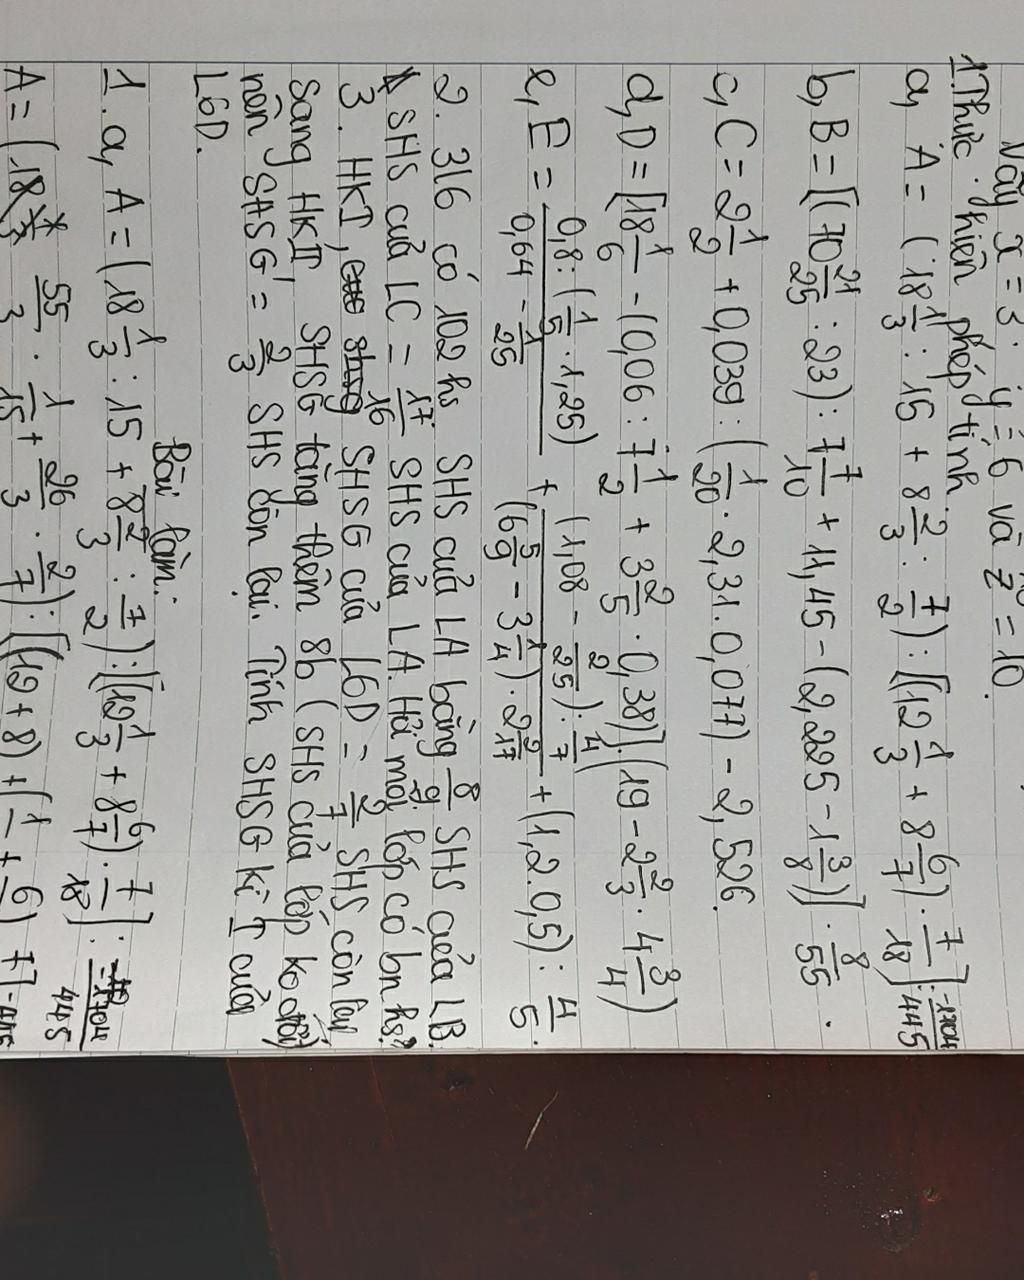 Vậy x = 3; y = 6 và z = 10.
1. Thực hiện phép tính
a, A = (18 1/3 : 15 + 8 2/3 : 7/2) : [(12 1/3 + 8 6/7) . 7/18] : -1704/445
b, B = [(10 21/25 : 23) : 7 7/10 + 11,45 - (2,225 - 1 3/8)] . 8/55 .
c, C = 2 1/2 + 0,039 : (1/20 . 2,31 . 0,077) - 2,526.
d, D = [18 1/6 - (0,06 : 7 1/2 + 3 2/5 . 0,38)] . (19 - 2 2/3 . 4 3/4)
e, E = 0,8 : (1/5 . 1,25) / 0,64 - 1/25 + (1,08 - 2/25) : 4/7 / (6 5/9 - 3 1/4) . 2 2/17 + (1,2 . 0,5) : 4/5 .
2. 3L6 có 102 hs SHS của LA bằng 8/9 SHS của LB.
SHS của LC = 17/16 SHS của LA. Hỏi mỗi lớp có bn hs?
3. HKI, SHSG của L6D = 2/7 SHS còn lại
Sang HKII SHSG tăng thêm 8b (SHS của lớp ko đổi)
nên SHSG = 2/3 SHS còn lại. Tính SHSG kì I của
L6D.
Bài làm:
1. a, A = (18 1/3 : 15 + 8 2/3 : 7/2) : [(12 1/3 + 8 6/7) . 7/18] : -1704/445
A = (55/3 . 1/15 + 26/3 . 2/7) : [(12 + 8) + (1/ + 6/)